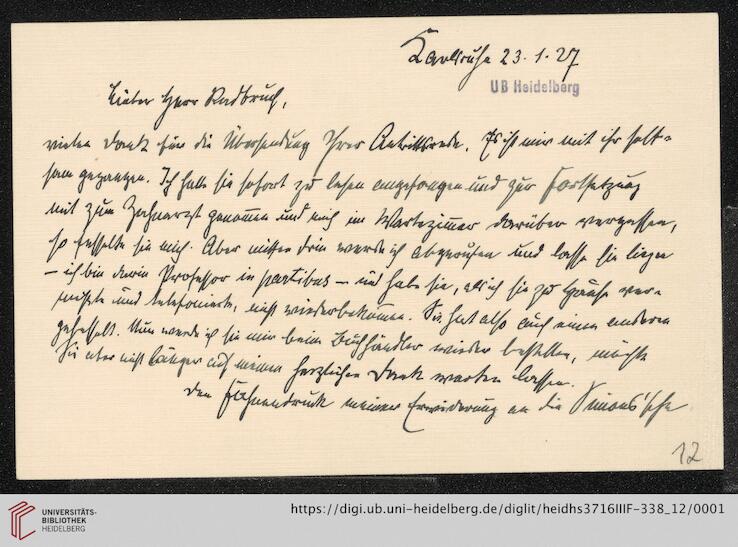 Karlsruhe 23.1.27
UB Heidelberg
Lieber Herr Radbruch,
vielen Dank für die Übersendung Ihrer Antrittsrede. Es ist mir mit ihr selt-
sam gegangen. Ich habe sie sofort zu lesen angefangen und zur Fortsetzung
mit zum Zahnarzt genommen und mich im Wartezimmer darüber vergessen,
so fesselte sie mich. Aber mitten drin werde ich abgerufen und lasse sie liegen
– ich bin darin Professor in partibus – und habe sie, als ich sie zu Hause ver-
mißte und telefonierte, nicht wiederbekommen. Sie hat also auch einen anderen
gefesselt. Nun werde ich sie mir beim Buchhändler wieder bestellen, möchte
Sie aber nicht länger auf meinen herzlichen Dank warten lassen.
Den Fahnendruck meiner Erwiderung an die Simons'sche
12
UNIVERSITÄTS-
BIBLIOTHEK
HEIDELBERG
https://digi.ub.uni-heidelberg.de/diglit/heidhs3716IIIF-338_12/0001